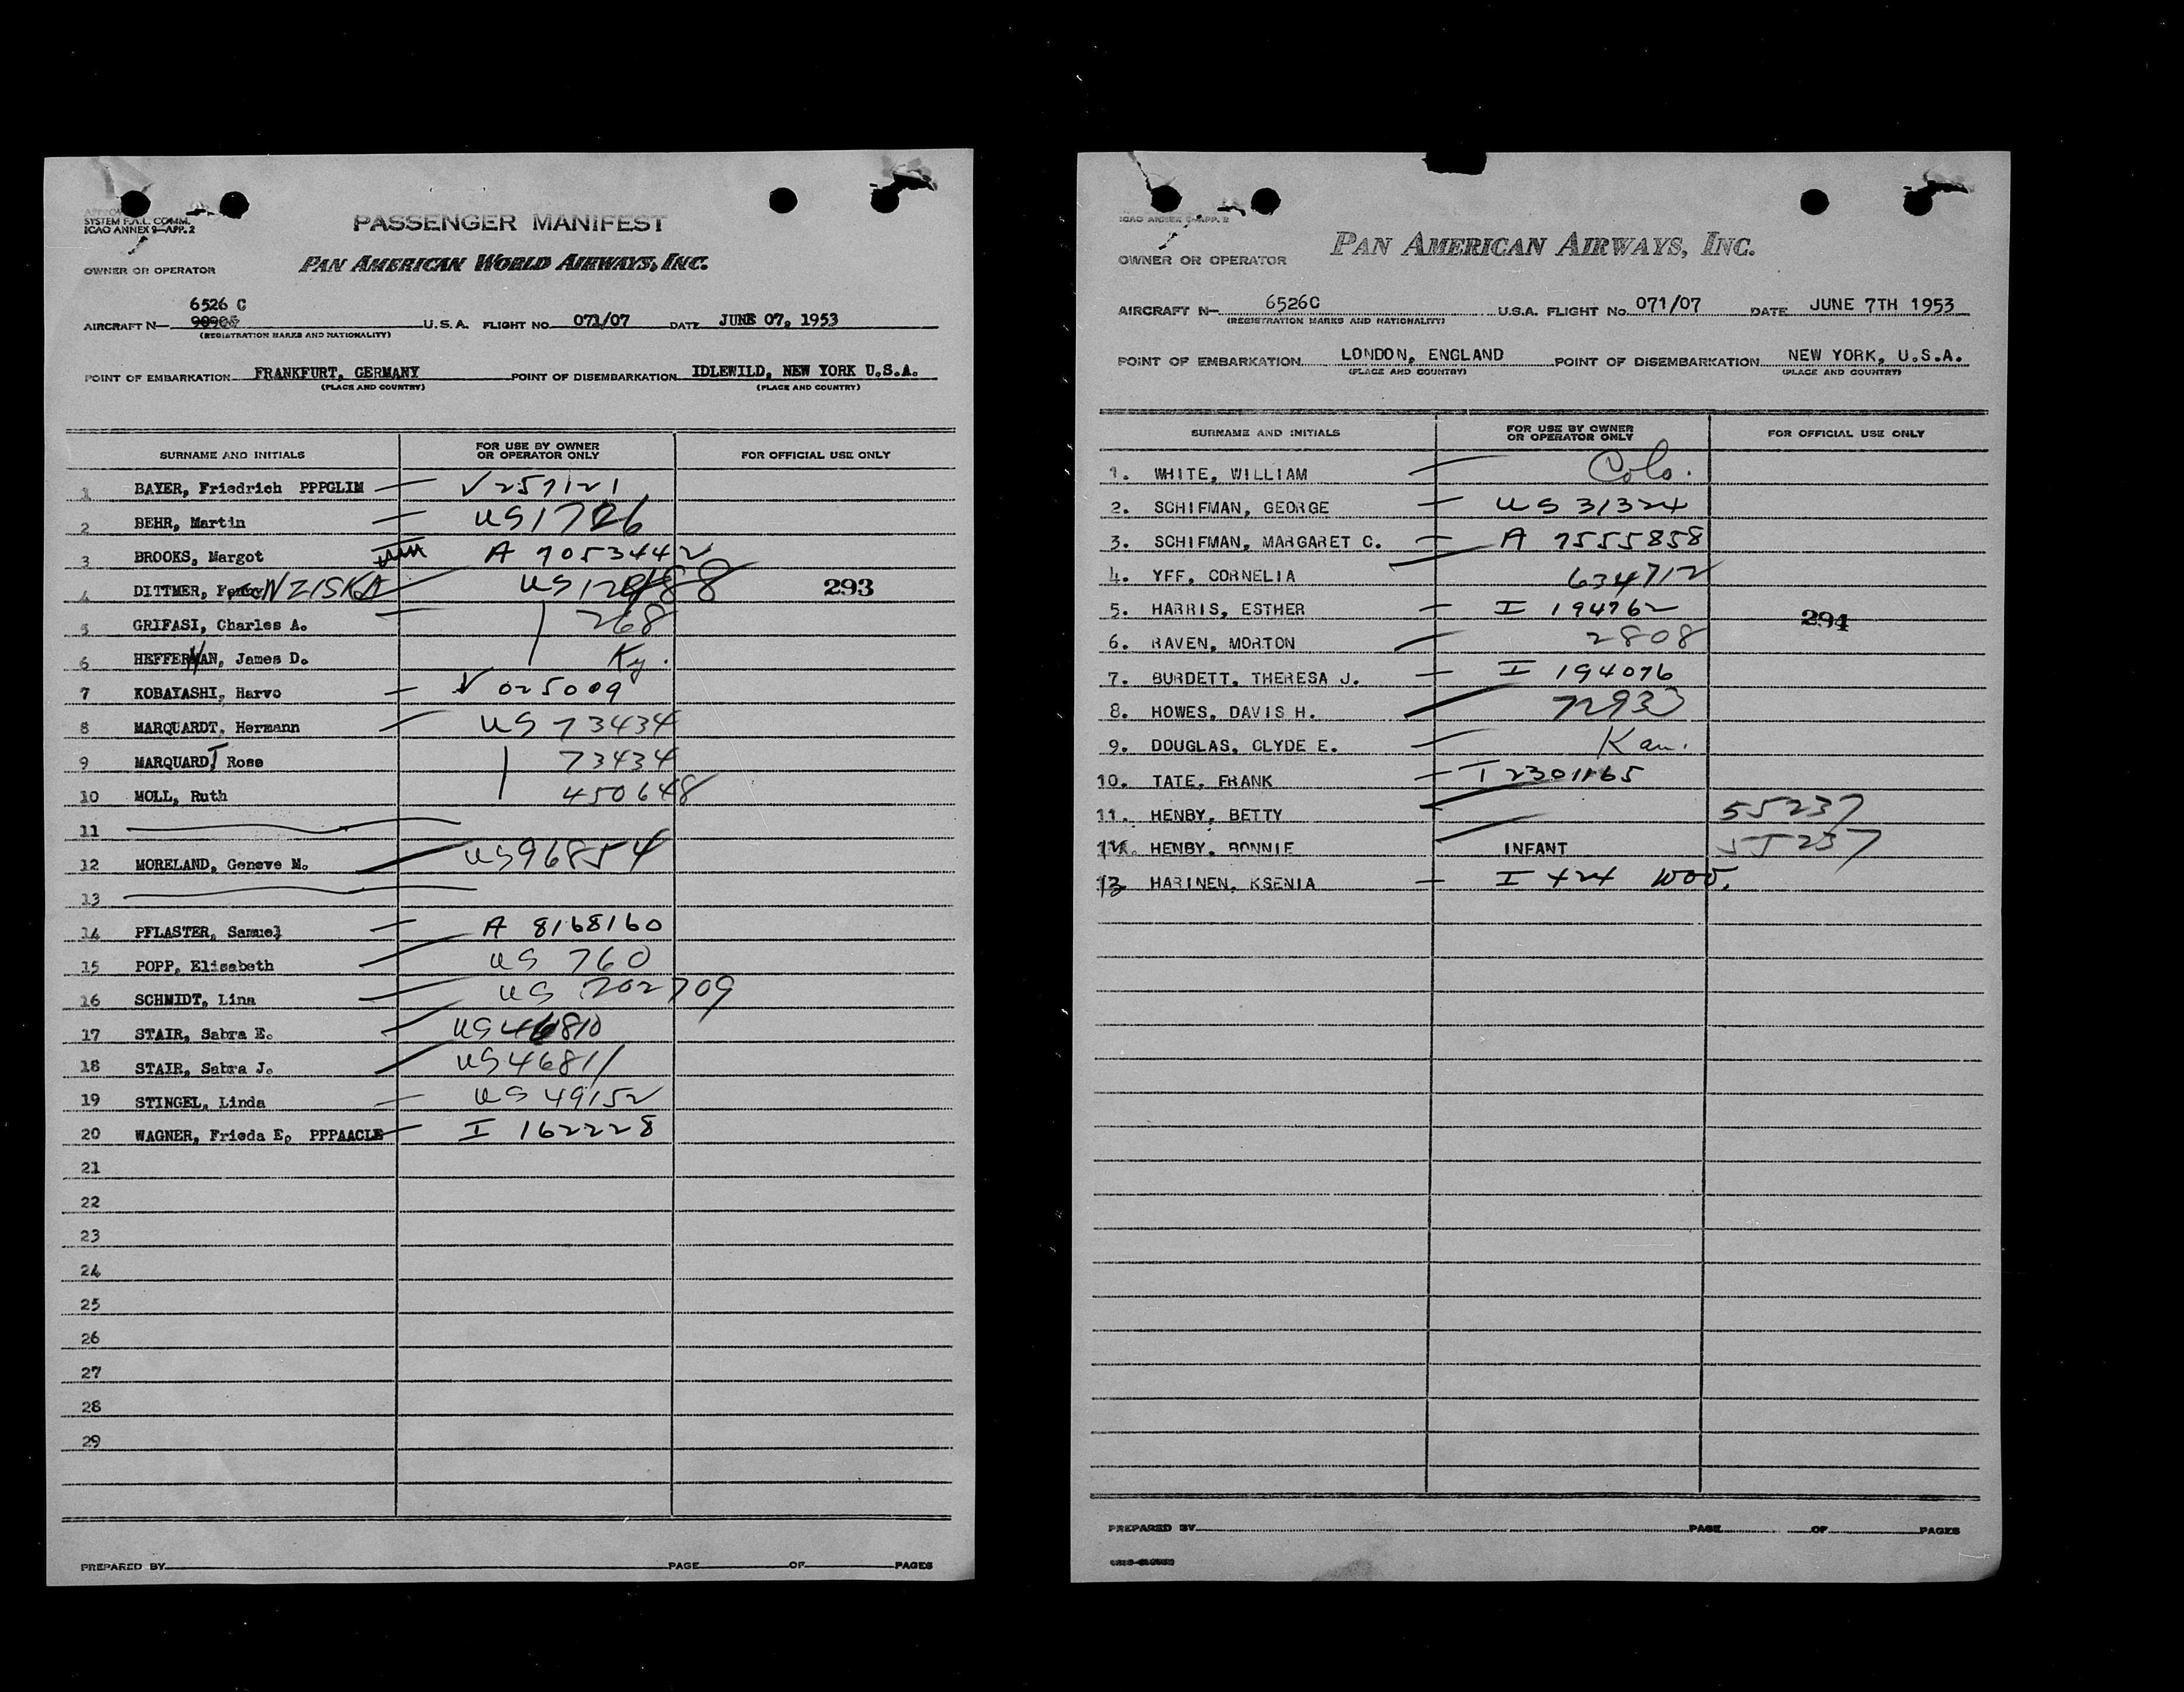 SYSTEM F.A.L. COMM.
ICAO ANNEX 9—APP. 2
PASSENGER MANIFEST
OWNER OR OPERATOR
PAN AMERICAN WORLD AIRWAYS, INC.
6526 C
AIRCRAFT N— U.S.A. FLIGHT NO. 071/07 DATE JUNE 07, 1953
(REGISTRATION MARKS AND NATIONALITY)
POINT OF EMBARKATION FRANKFURT, GERMANY POINT OF DISEMBARKATION IDLEWILD, NEW YORK U.S.A.
(PLACE AND COUNTRY) (PLACE AND COUNTRY)
SURNAME AND INITIALS FOR USE BY OWNER OR OPERATOR ONLY FOR OFFICIAL USE ONLY
1 BAYER, Friedrich PPPGLIM V257121
2 BEHR, Martin US1726
3 BROOKS, Margot A 7053442
4 DITTMER, NZISKA 293
5 GRIFASI, Charles A. 268
6 HEFFERNAN, James D. Ky.
7 KOBAYASHI, Harvo V 025009
8 MARQUARDT, Hermann US 73434
9 MARQUARDT Rose 73434
10 MOLL, Ruth 450648
11
12 MORELAND, Geneve M. US96854
13
14 PFLASTER, Samuel A 8168160
15 POPP, Elisabeth US 760
16 SCHMIDT, Lina US 202709
17 STAIR, Sabra E. US46810
18 STAIR, Sabra J. US46811
19 STINGEL, Linda US 49152
20 WAGNER, Frieda E. PPPAACLE I 162228
21
22
23
24
25
26
27
28
29
PREPARED BY PAGE OF PAGES
ICAO ANNEX 9—APP. 2
PAN AMERICAN AIRWAYS, INC.
OWNER OR OPERATOR
AIRCRAFT N— 6526C U.S.A. FLIGHT No. 071/07 DATE JUNE 7TH 1953
(REGISTRATION MARKS AND NATIONALITY)
POINT OF EMBARKATION LONDON, ENGLAND POINT OF DISEMBARKATION NEW YORK, U.S.A.
(PLACE AND COUNTRY) (PLACE AND COUNTRY)
SURNAME AND INITIALS FOR USE BY OWNER OR OPERATOR ONLY FOR OFFICIAL USE ONLY
1. WHITE, WILLIAM Colo.
2. SCHIFMAN, GEORGE US 31324
3. SCHIFMAN, MARGARET C. A 7555858
4. YFF, CORNELIA 634712
5. HARRIS, ESTHER I 194762 294
6. RAVEN, MORTON 2808
7. BURDETT, THERESA J. I 194076
8. HOWES, DAVIS H. 72933
9. DOUGLAS, CLYDE E. Kan.
10. TATE, FRANK I 2301165
11. HENBY, BETTY 55237
12. HENBY, BONNIE INFANT 55237
13 HARINEN, KSENIA I
PREPARED BY PAGE OF PAGES